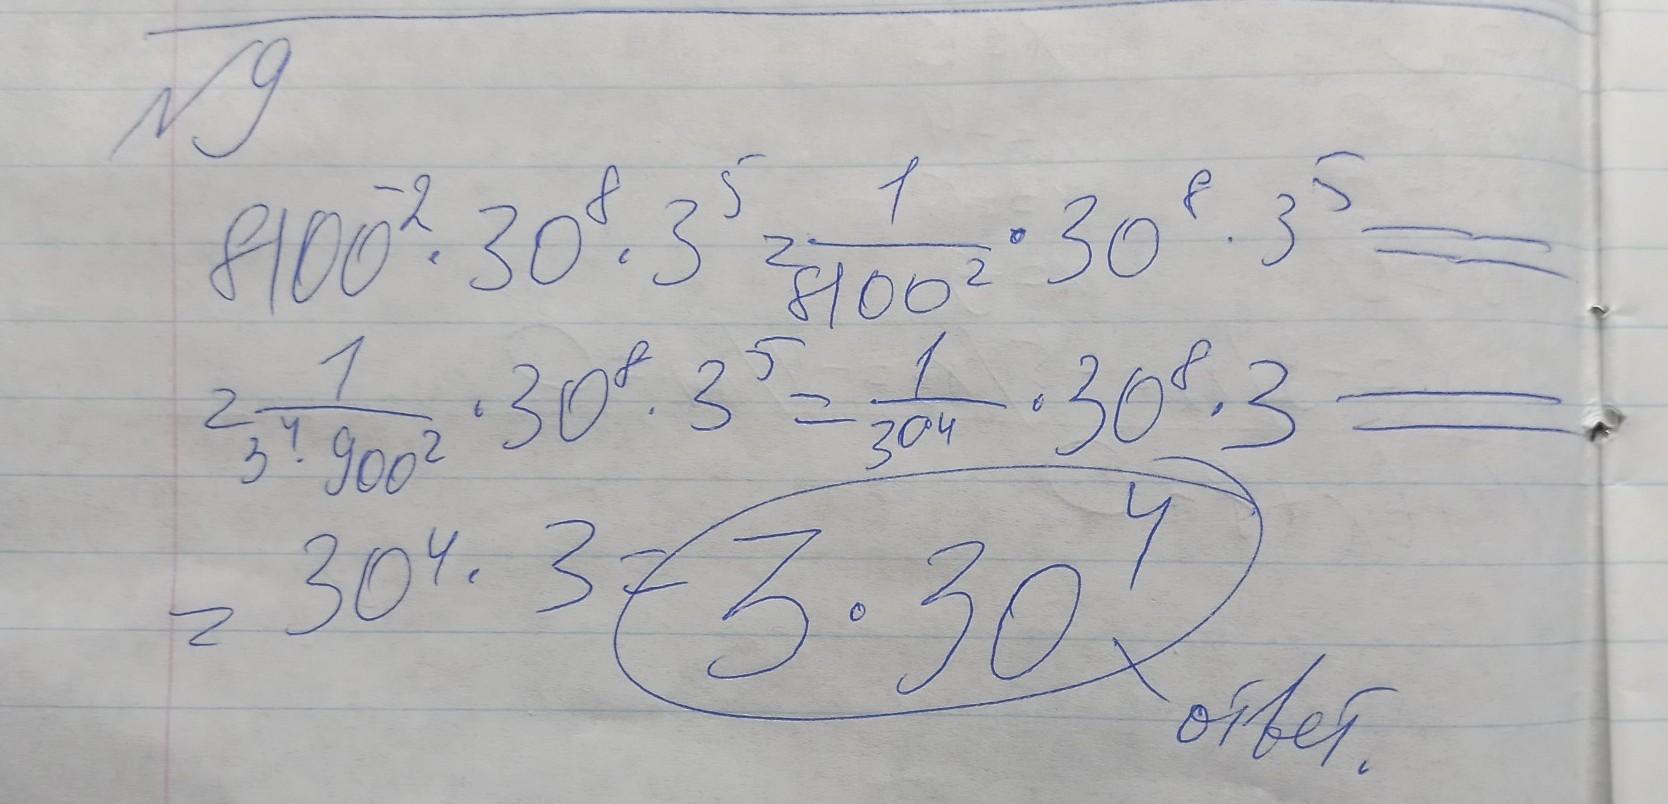 №9
8100⁻² · 30⁸ · 3⁵ = 1/8100² · 30⁸ · 3⁵ =
= 1/(3⁴ · 900²) · 30⁸ · 3⁵ = 1/30⁴ · 30⁸ · 3 =
= 30⁴ · 3 = 3 · 30⁴
ответ.